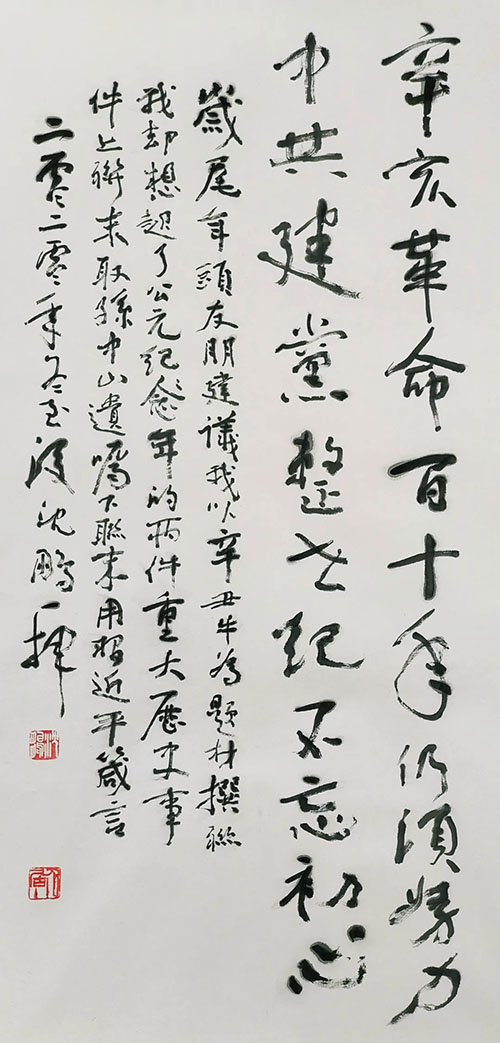 辛亥革命百十年仍須努力
中共建黨整世紀不忘初心
歲尾年頭友朋建議我以辛丑牛為題材撰聯
我却想起了公元紀念年的兩件重大歷史事
件上聯末取孫中山遺囑下聯末用習近平箴言
二零二零年冬至後沈鵬